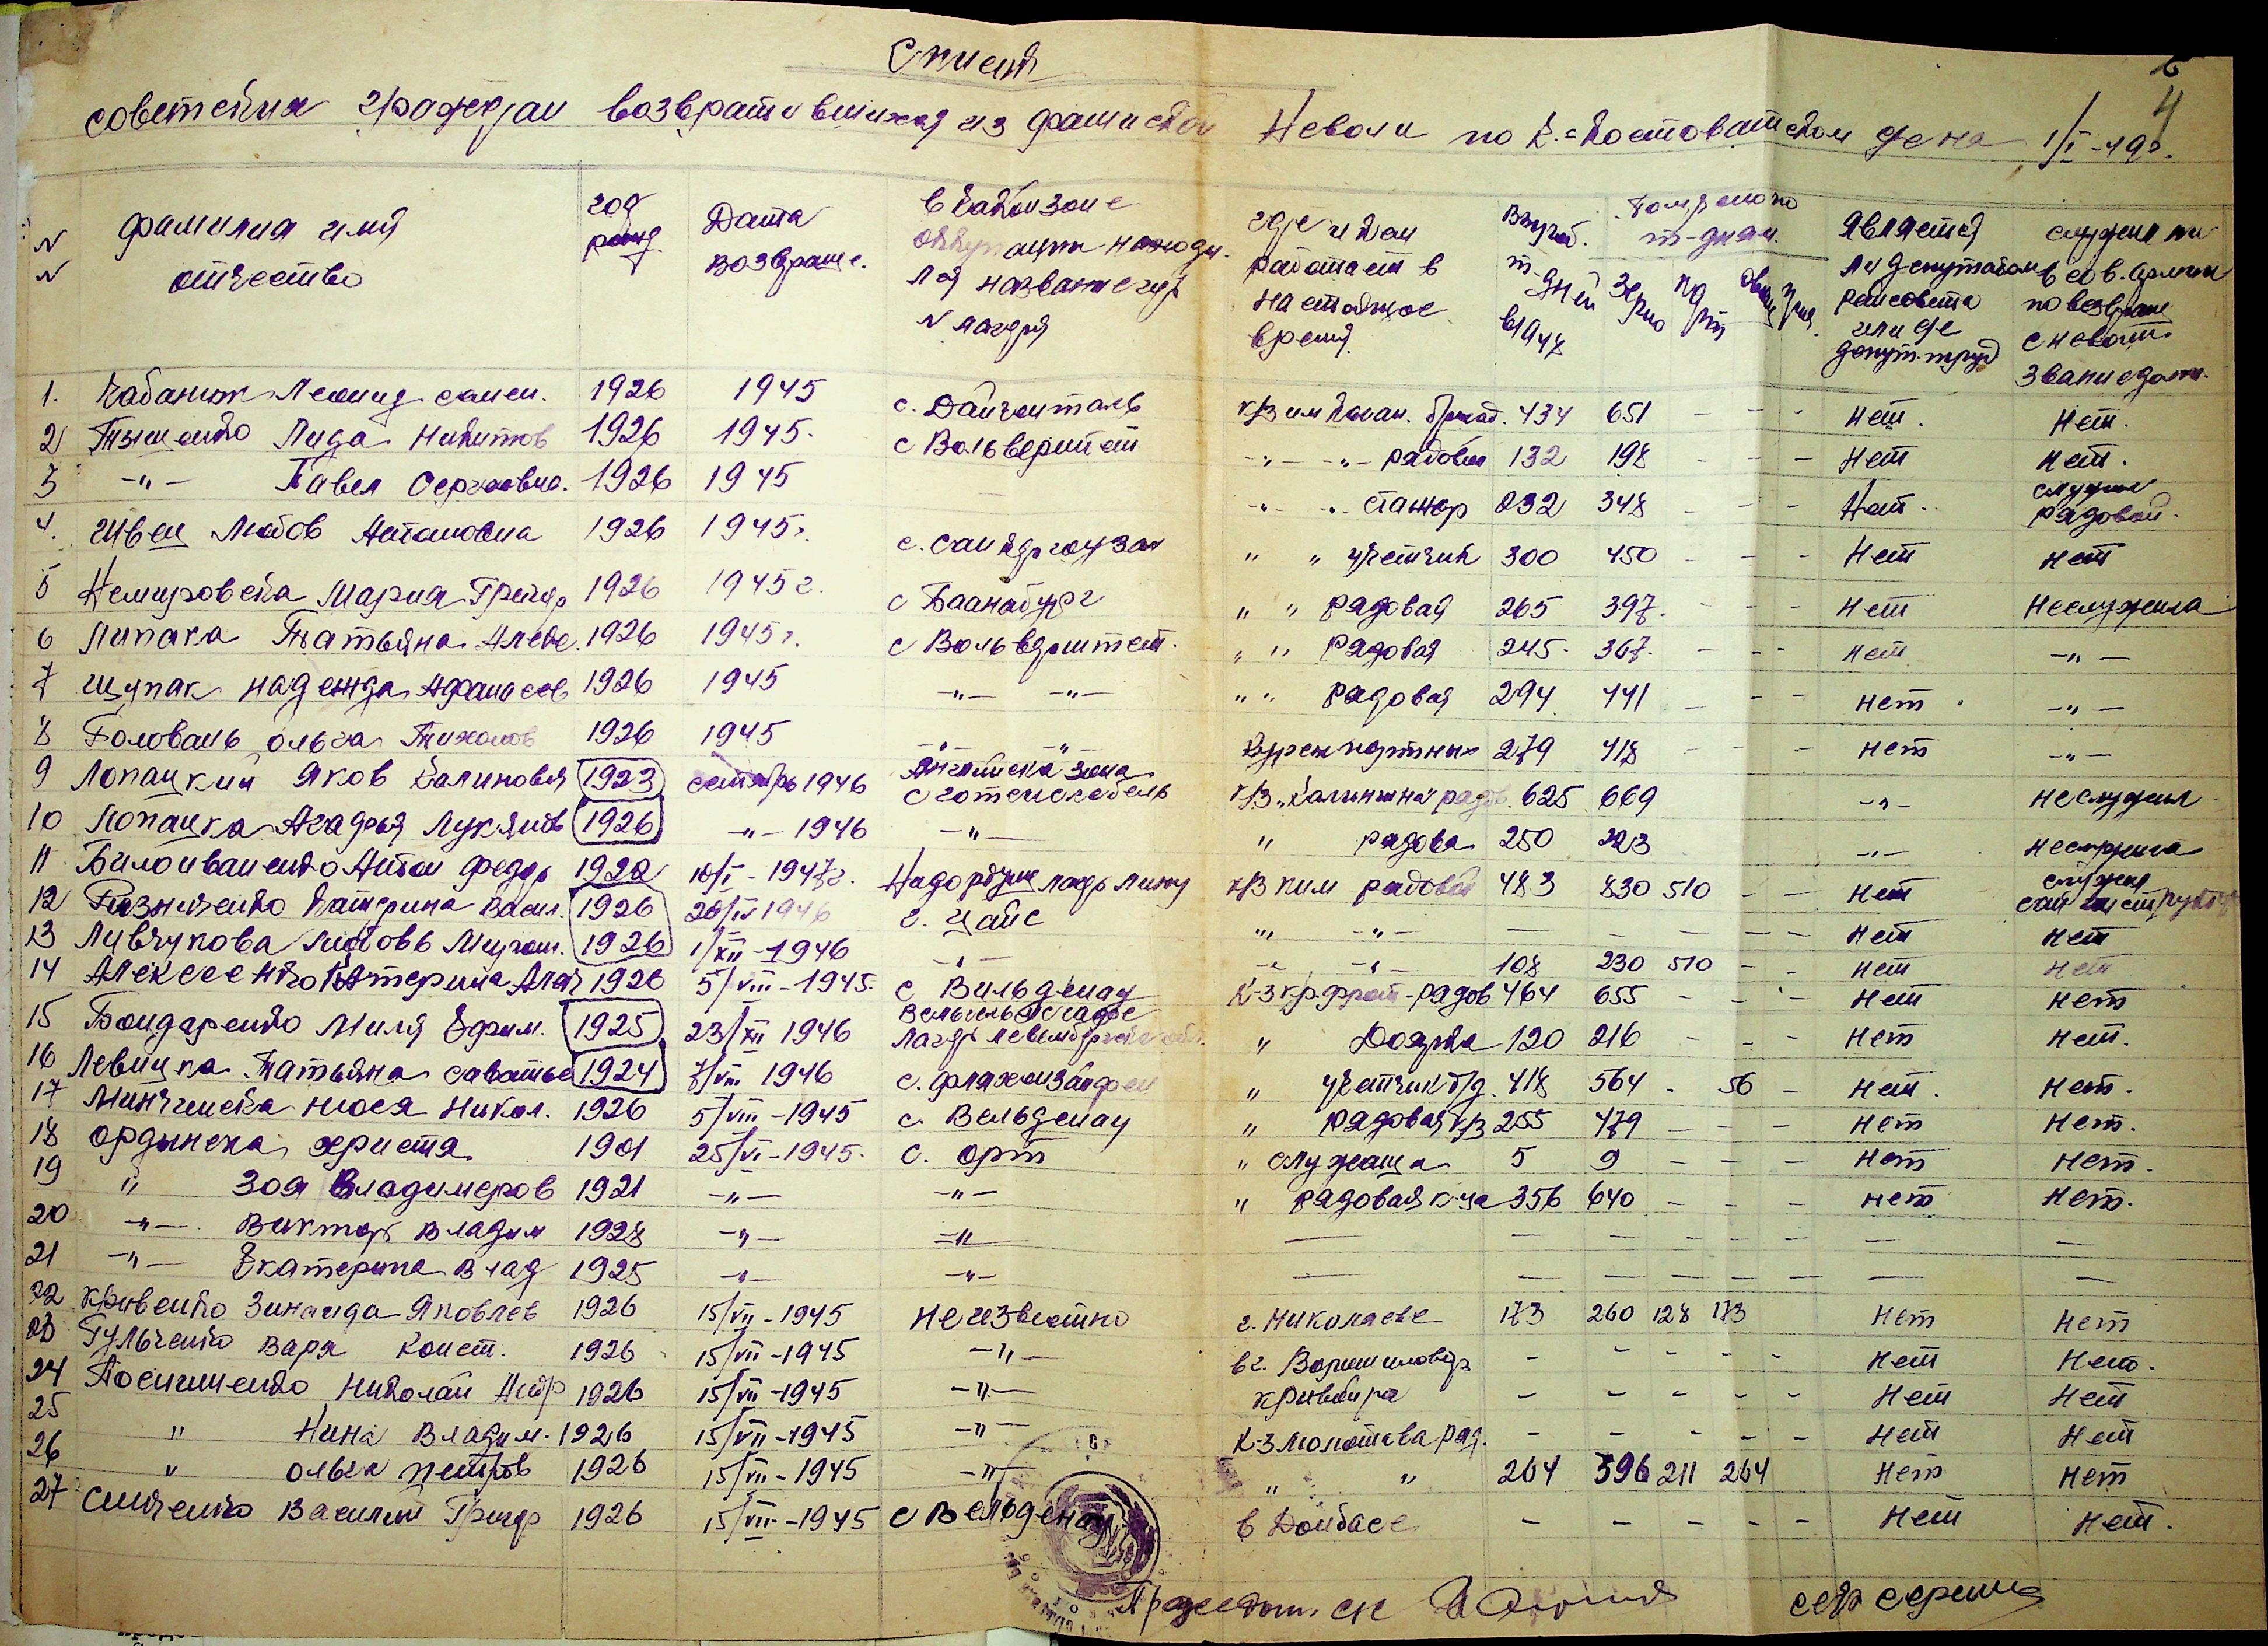 Список
советских граждан возвратившихся из фашиской неволи по К-Костоватском с/с на 1/I-49г.
4
N N фамилия имя отчество год рожд Дата возвраще. в какой зоне оккупации находи. лся название гор N лагеря где и кем работает в настоящое время выраб. т-дней в 1947 зерно является ли депутатом райсовета или с/с депут. труд служил ли в сов. армии по возвращ с неволи звание должн.
1. Чабанюк Леонид семен. 1926 1945 с. к/з им бригад. 434 651 - - - нет. нет.
2 Тимшенко Лида Никитов 1926 1945. с Вольверштет -"- -"- радовая 132 198 - - - нет нет.
3 -"- Павел Сергеевич. 1926 1945 -"- -"- стажор 232 348 - - - нет. служил рядовой.
4. Швец Любов Антоновна 1926 1945г. с. " " учетчик 300 450 - - - нет нет
5 Немировска Мария Григор 1926 1945г. с " " рядовая 265 397. - - - нет неслужила
6 Липака Татьяна Алекс. 1926 1945г. с Вольверштет. " " рядовая 245. 367. - - - нет -"-
7 Щупак надежда Афанасов 1926 1945 -"- -"- " " радовая 294 441 - - - нет. -"-
8 Головань ольга Тихонов 1926 1945 -"- -"- портных 279 418 - - - нет -"-
9 Лопацкий Яков Калиновя 1923 сентябрь 1946 Английска зона с к/з "Калинина" рядов. 625 669 -"- неслужил
10 Лопацка Агафья Лукянов 1926 -"- 1946 -"- " радова 250 223 -"- неслужила
11 Билоиваненко Антон федор 1922 10/I-1947г. к/з ким радовой 483 830 510 - - нет служил
12 Катерина Васил. 1926 28/IV 1946 г. цайс "" -"- - - - - - нет нет
13 Ливчукова Любовь 1926 1/XII-1946 -"- -"- -"- 108 230 510 - - нет нет
14 Алексеенко Катерина 1926 5/VIII-1945. с Вильденау к-з кр. фронт-радов 464 655 - - - нет нет
15 Бондаренко Миля Ефим. 1925 23/XII 1946 лагерь " Доярка 120 216 - - - нет нет.
16 Левицка Татьяна саватье 1924 7/VIII 1946 с. " учетчик б/д. 418 564 - 56 - нет. нет.
17 Минчинска нюся Никол. 1926 5/VIII-1945 с. Вельденау " рядовая к/з 255 479 - - - нет нет.
18 ордынска христя 1901 25/VI-1945. с. орт " служаща 5 9 - - - нет нет.
19 " Зоя Владимеров 1921 -"- -"- " рядовая к-за 356 640 - - - нет нет.
20 -"- Виктор Владим 1928 -"- -"- — - - - - - - -
21 -"- Екатерина Влад 1925 -"- -"- — - - - - - - -
22 кривенко Зинаида Яковлев 1926 15/VII-1945 неизвестно г. Николаеве 173 260 128 173 нет нет
23 Гульченко Варя Конст. 1926 15/VII-1945 -"- в г. Ворошиловгр - - - - - нет нет.
24 Николай 1926 15/VII-1945 -"- - - - - - нет нет
25 " Нина Владим. 1926 15/VII-1945 -"- к-з молотова ряд. - - - - - нет нет
26 " ольга петров 1926 15/VII-1945 -"- " " 264 396 211 264 нет нет
27 Синченко Василий Григор 1926 15/VII-1945 с Вельденау в Донбасе - - - - - нет нет.
с/с секр